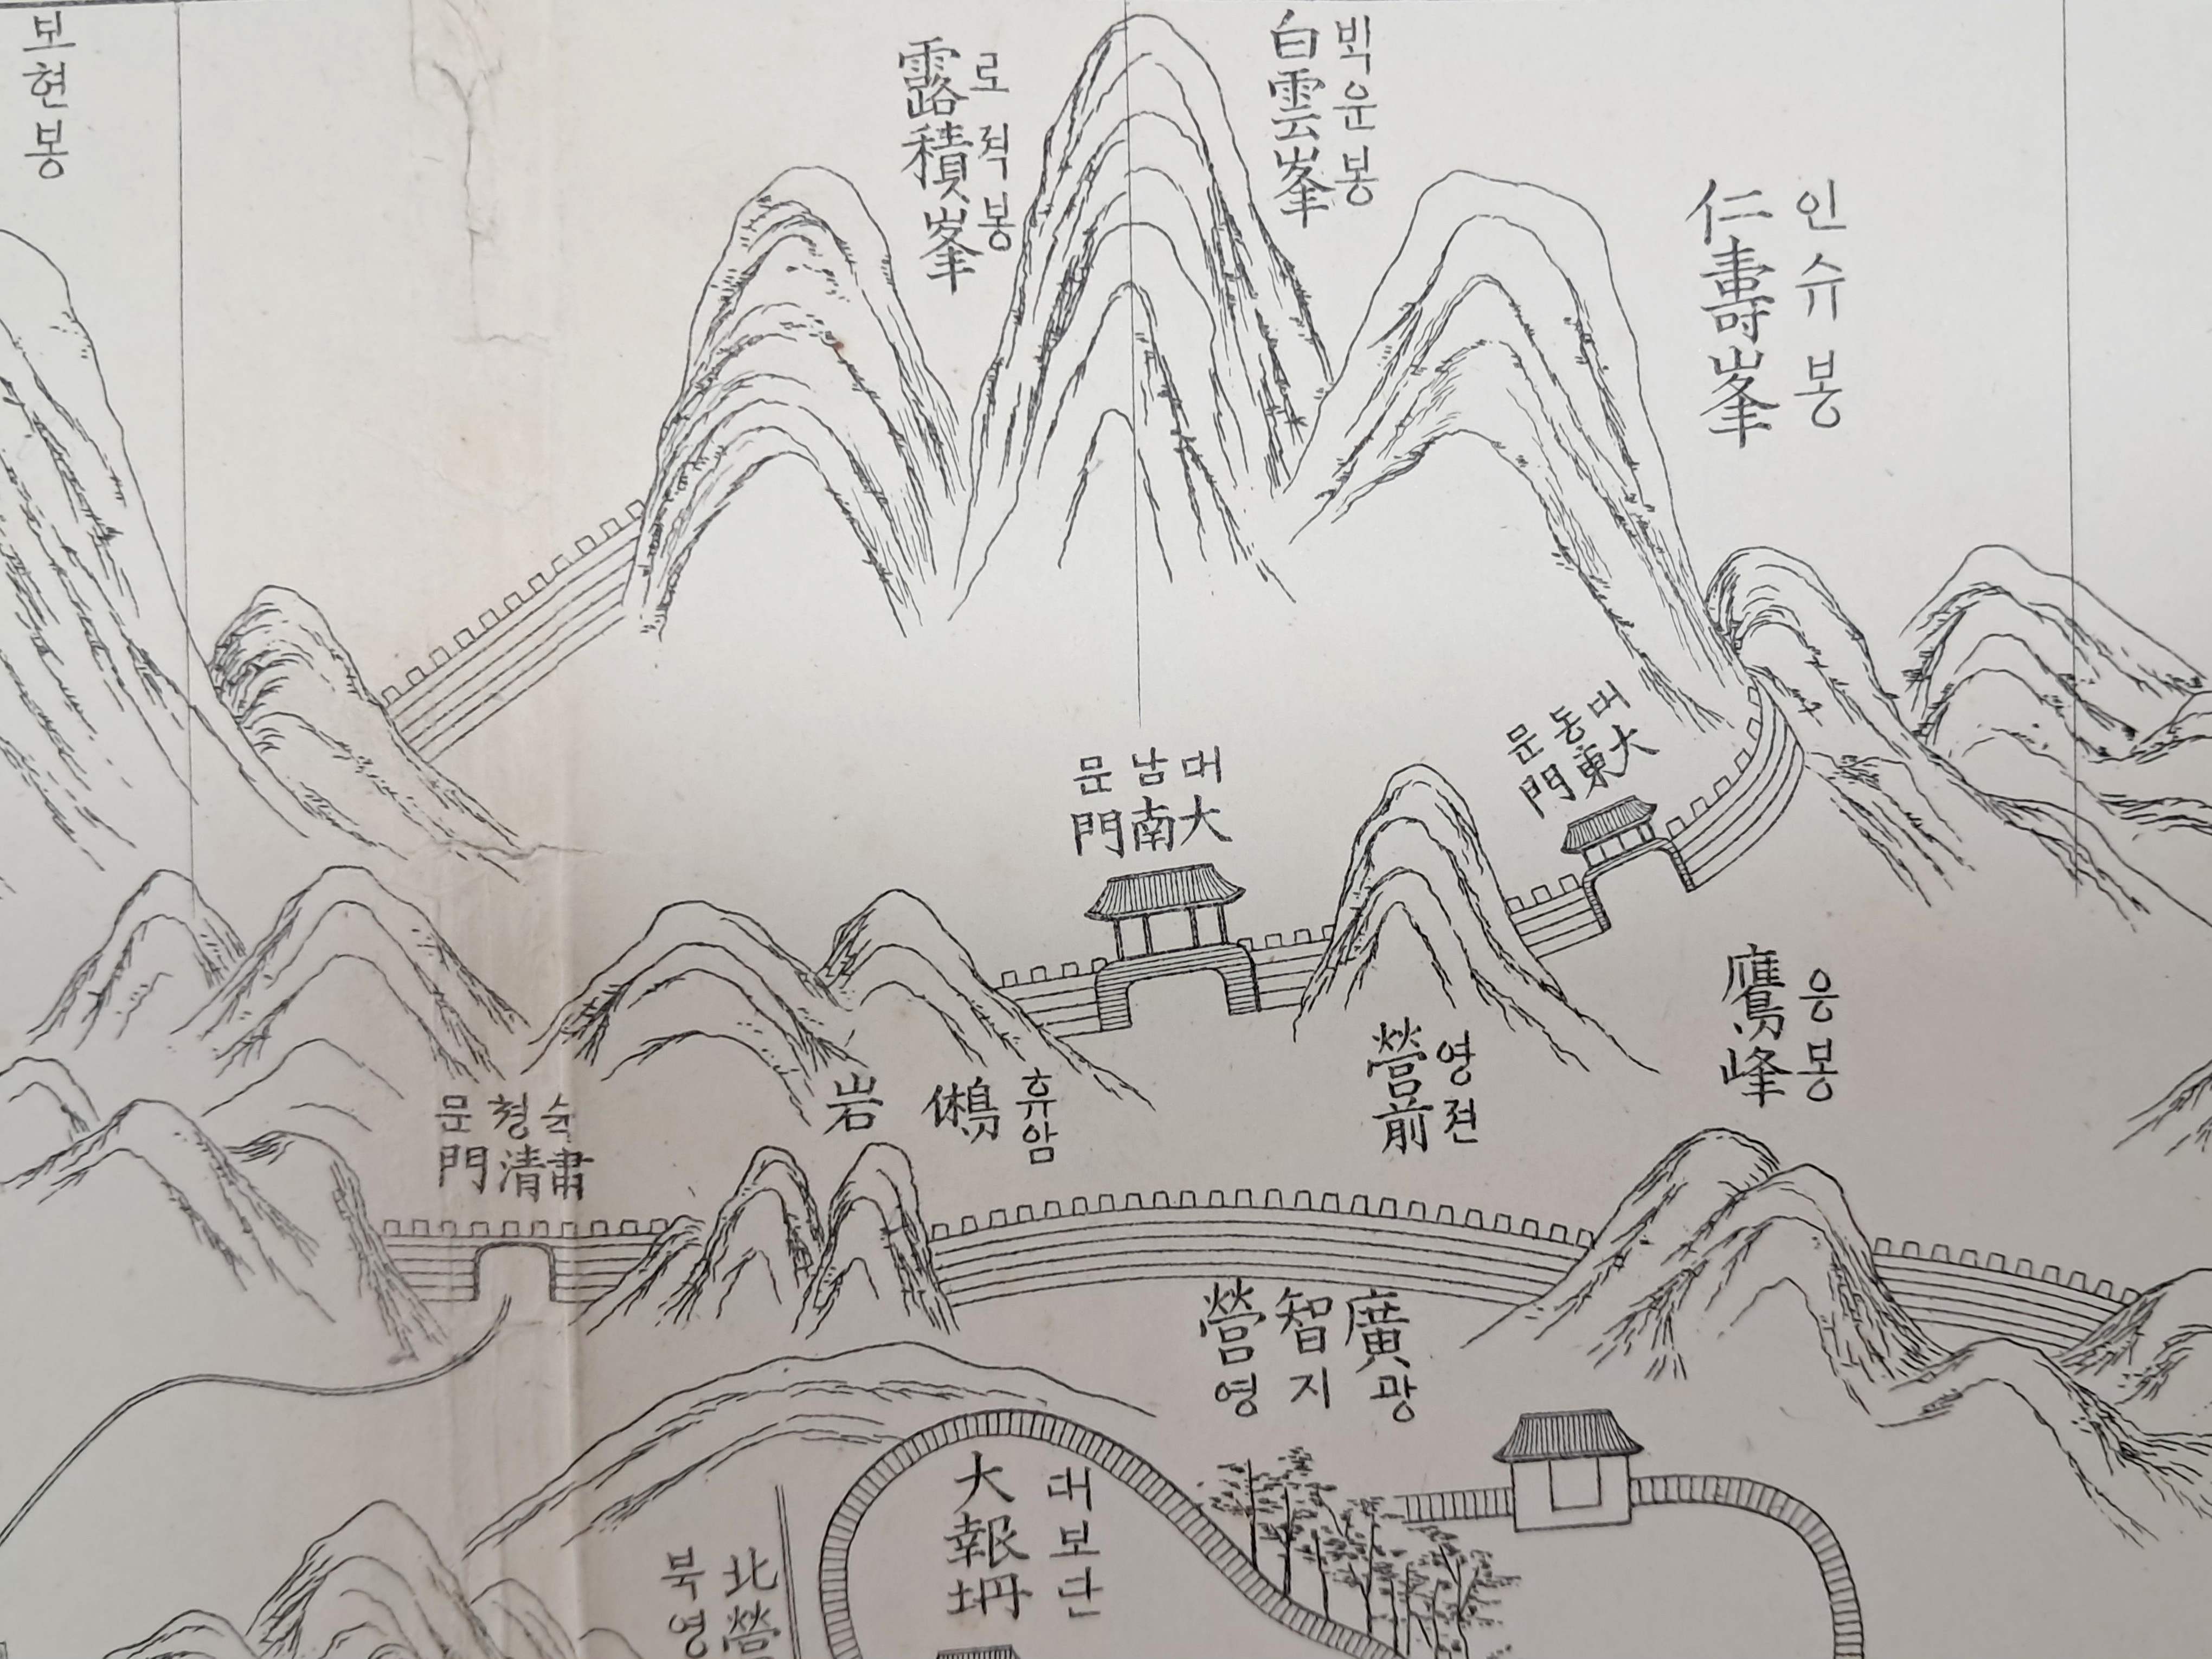 보현봉
露積峯
로젹봉
白雲峯
ᄇᆡᆨ운봉
仁壽峯
인슈봉
대남문
大南門
대동문
大東門
鷹峰
응봉
營前
영젼
鵂岩
휴암
숙쳥문
肅清門
廣智營
광지영
大報坍
대보단
北營
북영